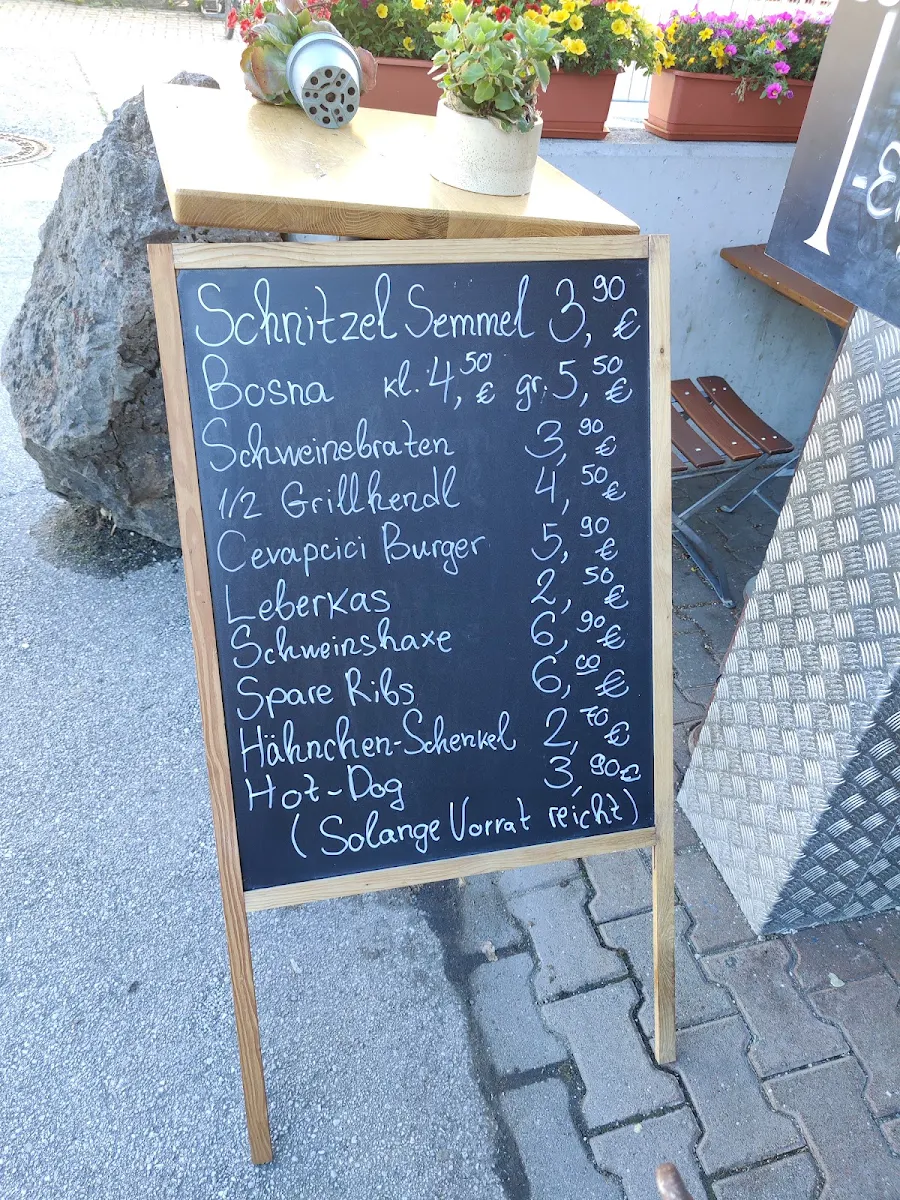 Schnitzel Semmel 3,90 €
Bosna kl. 4,50 € gr. 5,50 €
Schweinebraten 3,90 €
1/2 Grillhendl 4,50 €
Cevapcici Burger 5,90 €
Leberkas 2,50 €
Schweinshaxe 6,90 €
Spare Ribs 6,00 €
Hähnchen-Schenkel 2,70 €
Hot-Dog 3,90 €
(Solange Vorrat reicht)